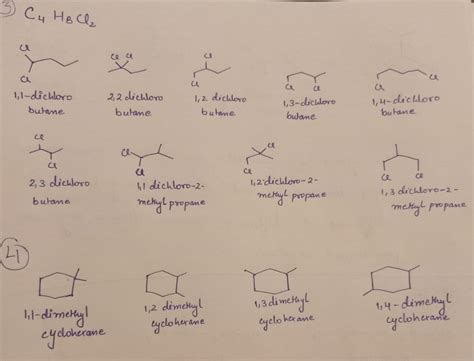 3 C4 H8 Cl2
Cl Cl Cl Cl Cl
Cl Cl Cl Cl Cl
1,1-dichloro 2,2 dichloro 1,2 dichloro 1,3-dichloro 1,4-dichloro
butane butane butane butane butane
Cl Cl Cl
Cl Cl Cl Cl Cl
2,3 dichloro 1,1 dichloro-2- 1,2-dichloro-2- 1,3 dichloro-2-
butane methyl propane methyl propane methyl propane
4
1,1-dimethyl 1,2 dimethyl 1,3 dimethyl 1,4-dimethyl
cyclohexane cyclohexane cyclohexane cyclohexane